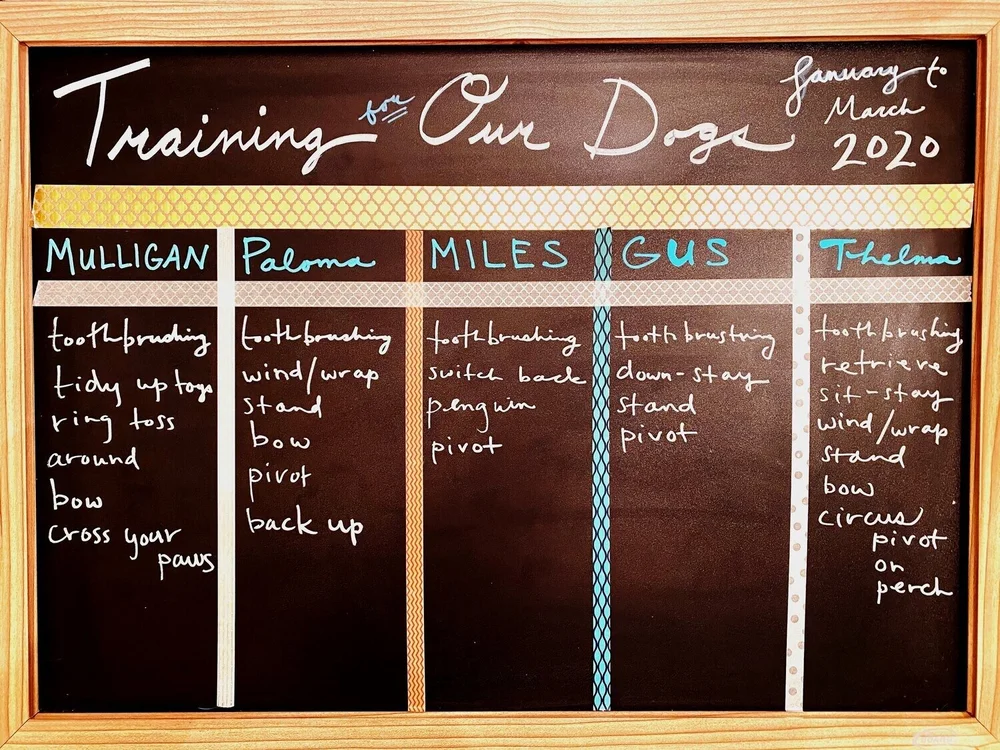 Training for Our Dogs
January to
March
2020
MULLIGAN
toothbrushing
tidy up toys
ring toss
around
bow
cross your
paws
Paloma
toothbrushing
wind/wrap
stand
bow
pivot
back up
MILES
toothbrushing
switch back
penguin
pivot
GUS
toothbrushing
down-stay
stand
pivot
Thelma
toothbrushing
retrieve
sit-stay
wind/wrap
stand
bow
circus
pivot
on
perch